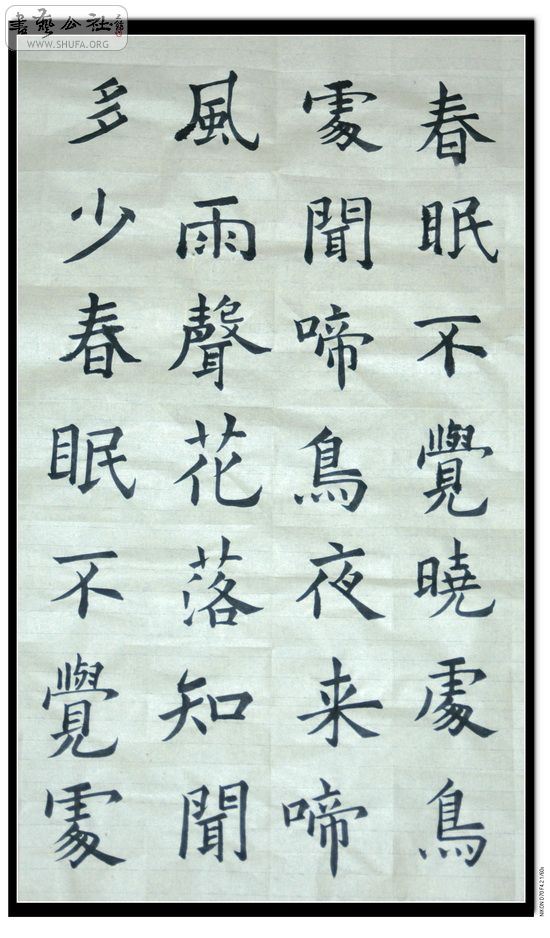 書藝公社
WWW.SHUFA.ORG
春眠不覺曉處鳥
處聞啼鳥夜来啼
風雨聲花落知聞
多少春眠不覺處
NIKON D70 F4.2 1/60s